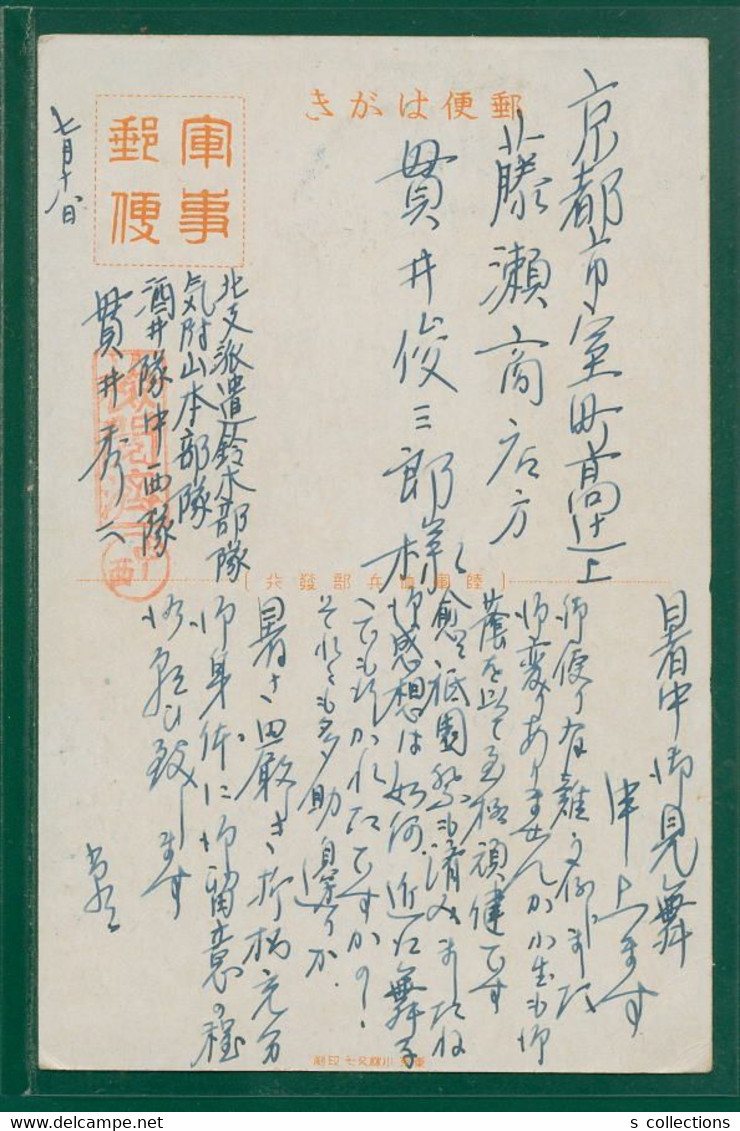 郵便はがき
軍事
郵便
京都市室町高辻上
藤瀬商店方
貫井俊三郎様
七月十八日
北支派遣鈴木部隊
気附山本部隊
酒井隊中西隊
貫井秀六
検閲済
西
陸軍 兵部發行
暑中御見舞
申上ます
御便り有難う存じました
御変りありませんか小生も御
蔭を以て至極頑健です
愈々祇園祭も済みましたね
御感想は如何、近江舞子
へでも行かれたですかの?
それとも多助 邊りか
暑さ 厳しき折柄充分
御身体に御留意の程
祈り致します
s collections